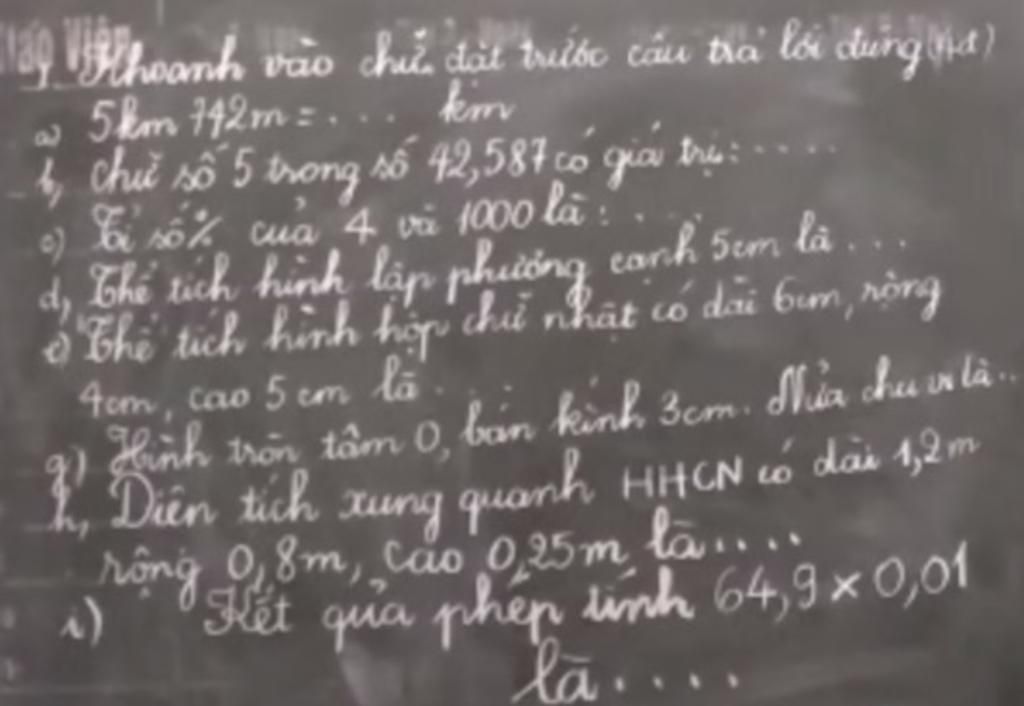 1, Khoanh vào chữ đặt trước câu trả lời đúng (4đ)
a) 5km 742m = .... km
b, Chữ số 5 trong số 42,587 có giá trị: .....
c) Tỉ số % của 4 và 1000 là: ....
d, Thể tích hình lập phương cạnh 5cm là ...
e) Thể tích hình hộp chữ nhật có dài 6cm, rộng
4cm, cao 5cm là ....
g) Hình tròn tâm O, bán kính 3cm. Nửa chu vi là..
h, Diện tích xung quanh HHCN có dài 1,2m
rộng 0,8m, cao 0,25m là ....
i) Kết quả phép tính 64,9 x 0,01
là ....